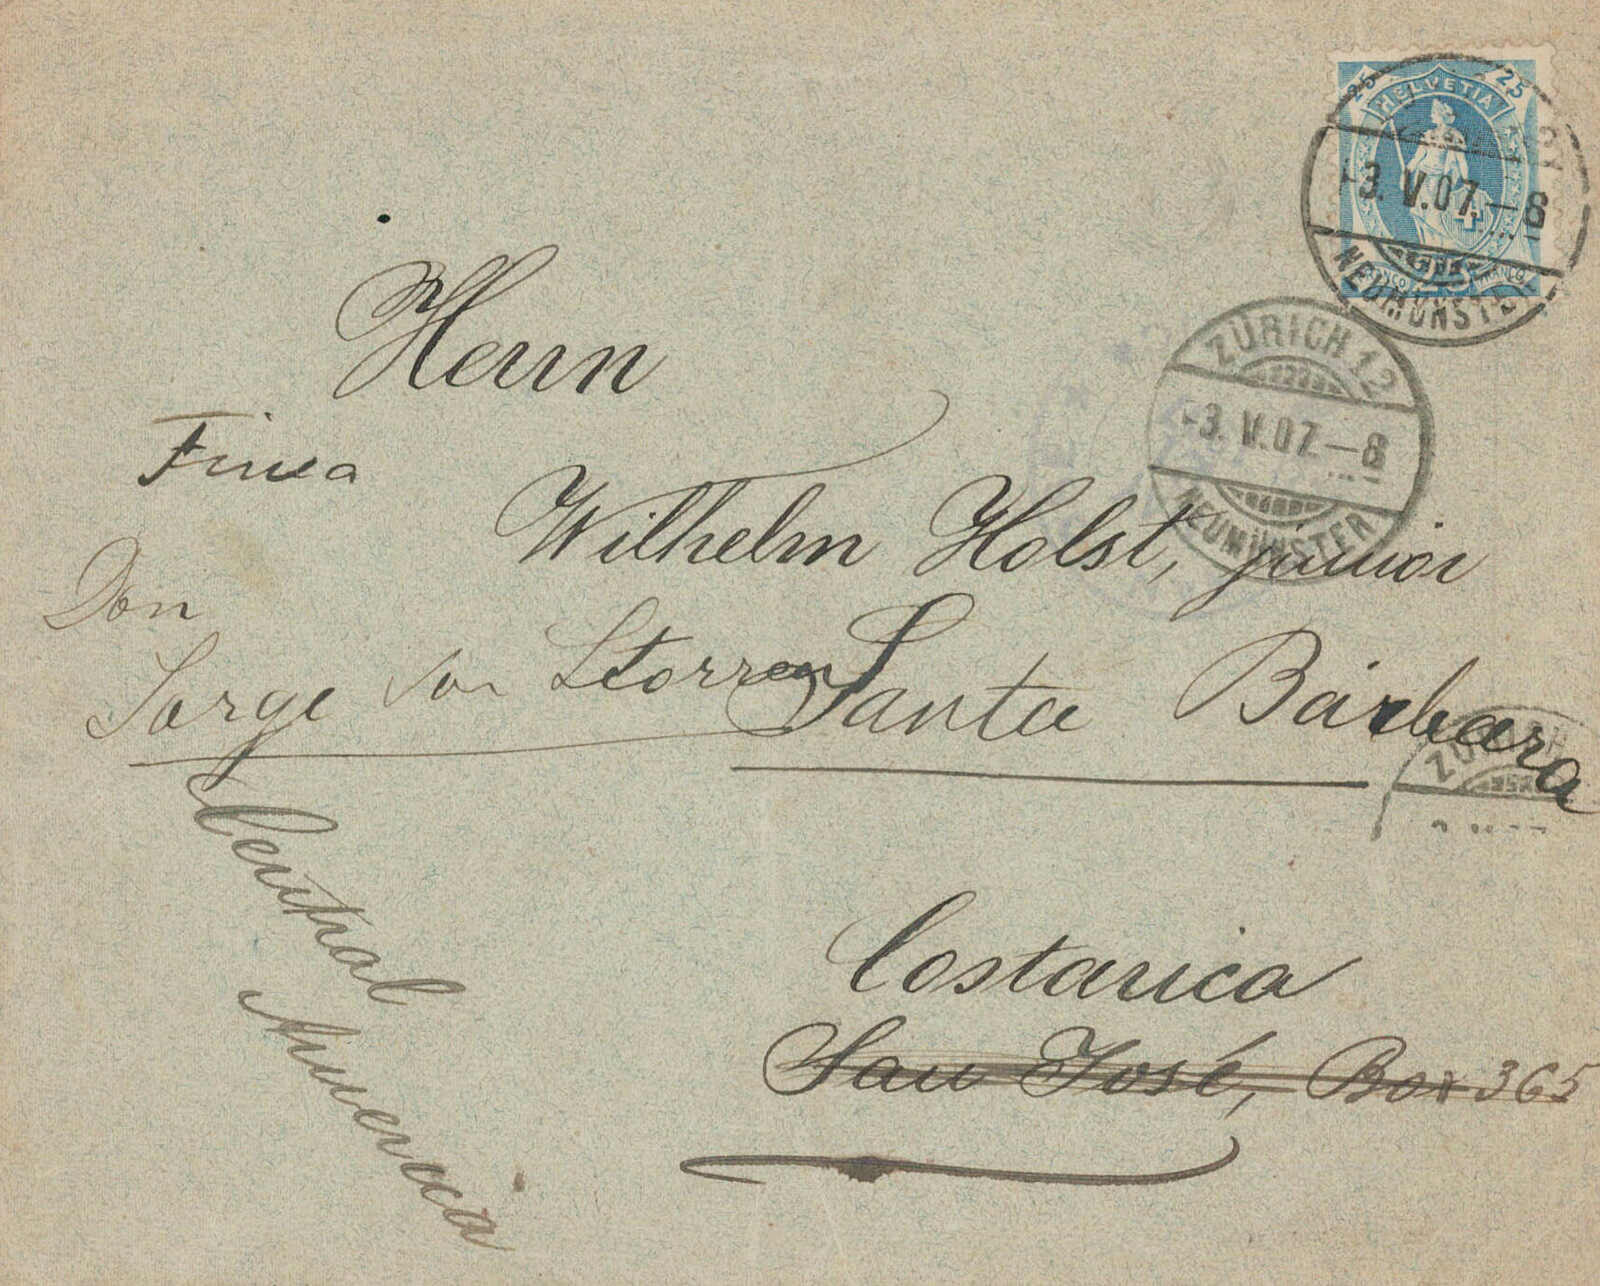 25 HELVETIA 25
-3. V.07.-8
NEUMÜNSTER
FRANCO FRANCO
ZÜRICH 12
-3. V.07.-8
NEUMÜNSTER
Herrn
Finca
Wilhelm Holst, junior
Don
Jorge von Storren
Santa Bárbara
ZÜRICH
Central
America
Costarica
San José, Box 365